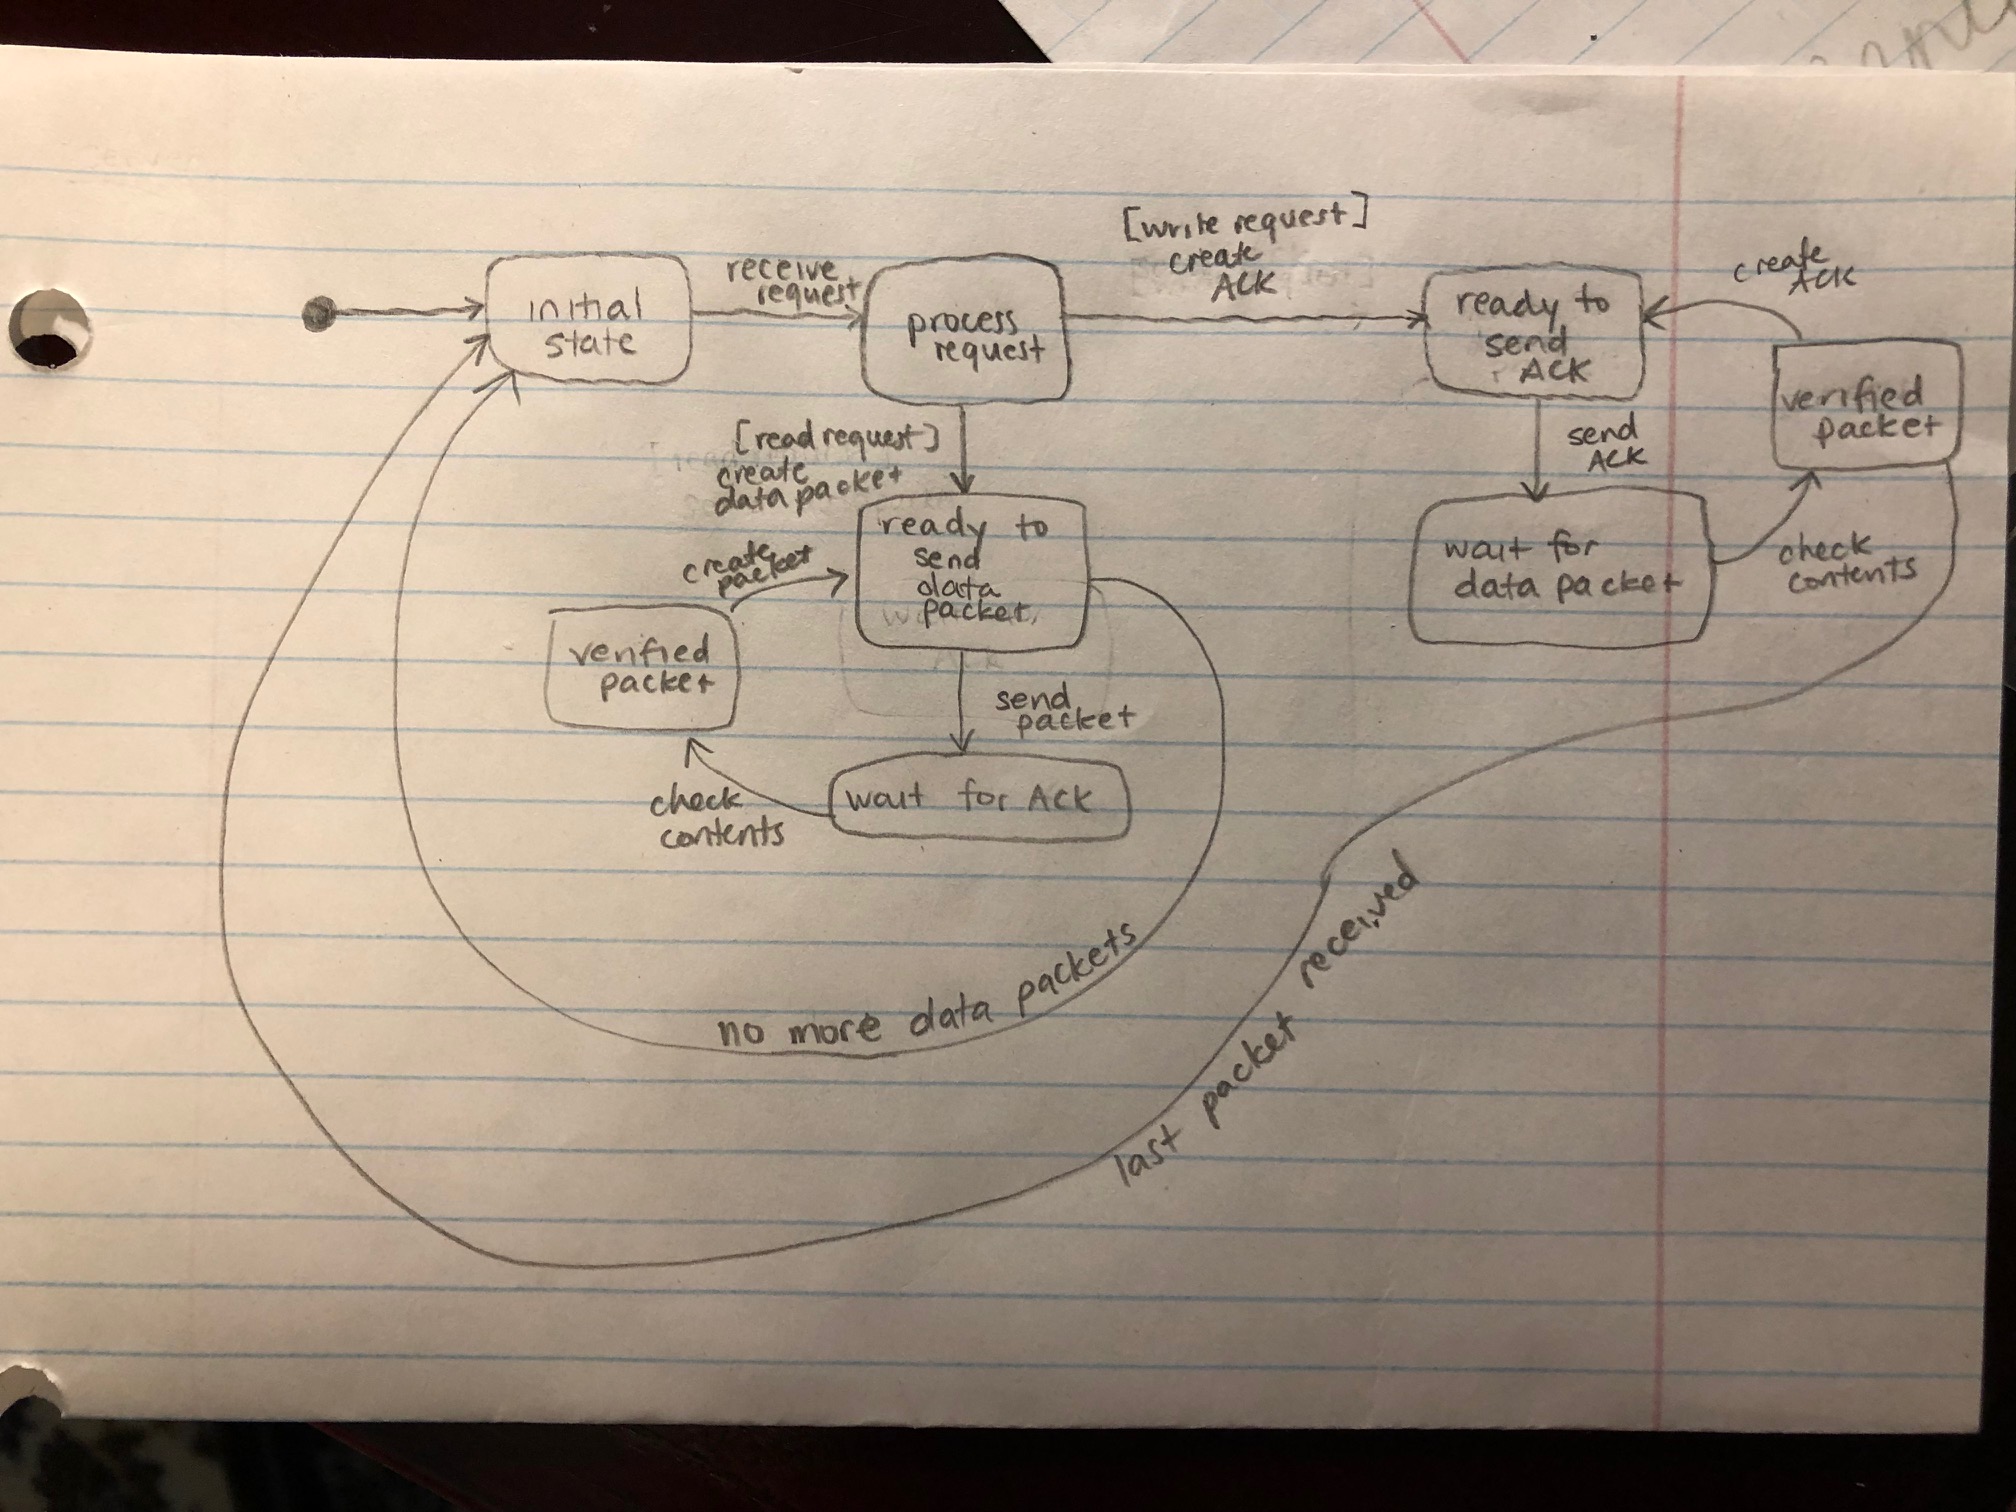 initial
state
receive
request
process
request
[write request]
create
ACK
ready to
send
ACK
create
ACK
verified
packet
send
ACK
wait for
data packet
check
contents
[read request]
create
data packet
ready to
send
data
packet
create
packet
verified
packet
send
packet
wait for ACK
check
contents
no more data packets
last packet received